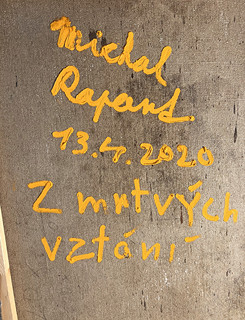 Michal
Rapant.
13.4.2020
Z mrtvých
vztání